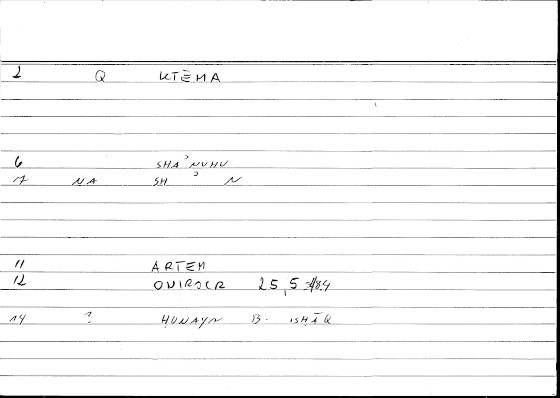 2 Q KTĒMA
6 SHAʾNUHU
7 NA SHʾN
11 ARTEM
12 ONIROCR 25,5
14 ? ḤUNAYN B. ISḤĀQ